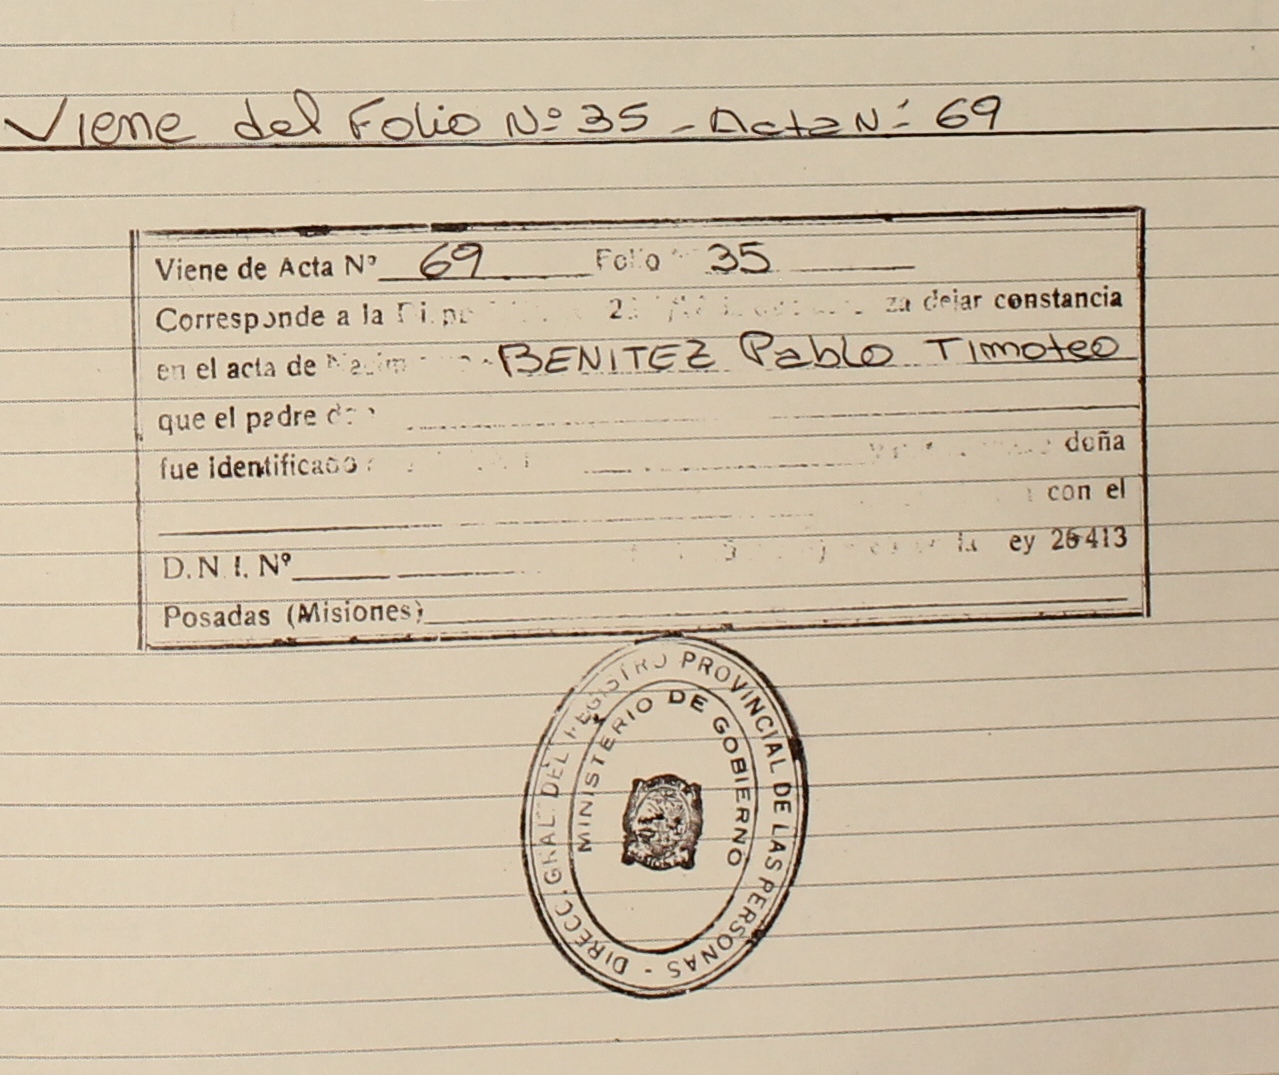 Viene del Folio Nº 35 - Acta Nº 69
Viene de Acta Nº 69 Folio 35
Corresponde a la dejar constancia
en el acta de BENITEZ Pablo Timoteo
que el padre
fue identificado doña
con el
D.N.I. Nº ley 26413
Posadas (Misiones)
DIRECC. GRAL. DEL REGISTRO PROVINCIAL DE LAS PERSONAS -
MINISTERIO DE GOBIERNO